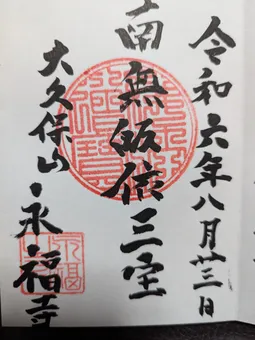 令和六年八月廿三日
南無皈依三宝
大久保山・永福寺